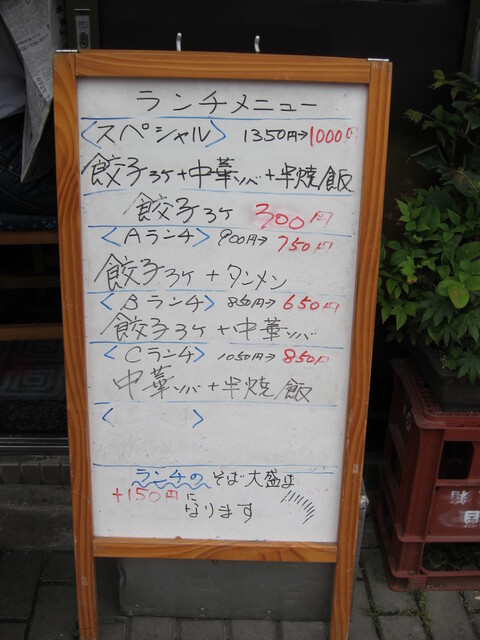 ランチメニュー
〈スペシャル〉 1350円→1000円
餃子3ケ+中華ソバ+半焼飯
餃子3ケ 300円
〈Aランチ〉 900円→750円
餃子3ケ+タンメン
〈Bランチ〉 850円→650円
餃子3ケ+中華ソバ
〈Cランチ〉 1050円→850円
中華ソバ+半焼飯
〈 〉
ランチの そば大盛は
+150円に
なります